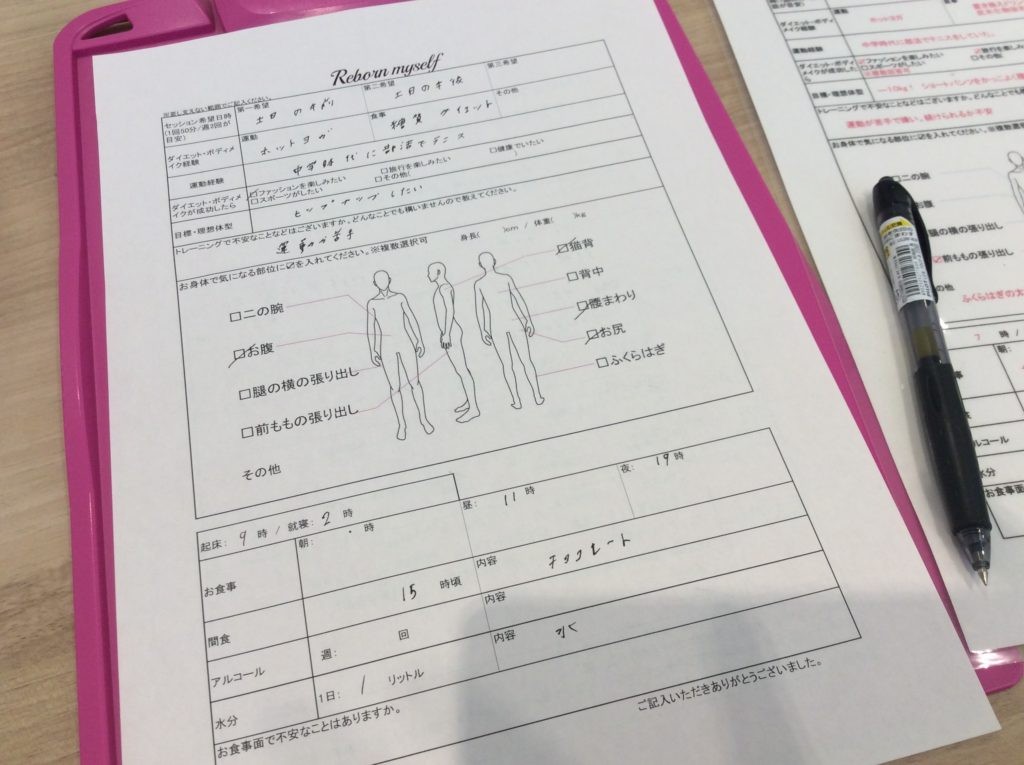 Reborn myself
※差し支えない範囲でご記入ください。
セッション希望日時
(1回50分/週2回が
目安)
第一希望
土日の午前
第二希望
土日の午後
第三希望
ダイエット・ボディメ
イク経験
運動
ホットヨガ
食事
糖質ダイエット
その他
運動経験
中学時代に部活でテニス
ダイエット・ボディメ
イクが成功したら
☑ファッションを楽しみたい
□旅行を楽しみたい
□健康でいたい
□スポーツがしたい
□その他( )
目標・理想体型
ヒップアップしたい
トレーニングで不安なことなどはございますか。どんなことでも構いませんので教えてください。
運動が苦手
お身体で気になる部位に☑を入れてください。※複数選択可
身長( )cm / 体重( )kg
□二の腕
☑お腹
□腿の横の張り出し
□前ももの張り出し
その他
☑猫背
□背中
☑腰まわり
☑お尻
□ふくらはぎ
起床: 9 時 / 就寝: 2 時
お食事
朝: ・ 時
昼: 11 時
夜: 19 時
間食
15 時頃
内容 チョコレート
アルコール
週: 回
内容
水分
1日: 1 リットル
内容 水
お食事面で不安なことはありますか。
ご記入いただきありがとうございました。
ダイエット・ボディ
メイク経験
運動
ホットヨガ
運動経験
中学時代に部活でテニスをしていた。
ダイエット・ボディメ
イクが成功したら
☑ファッションを楽しみたい
□スポーツがしたい
☑旅行を楽しみたい
□その他(
目標・理想体型
トレーニングで不安なことなどはございますか。
運動が苦手で嫌い。続けられるか不安
お身体で気になる部位に☑を入れてください。※複数選
□二の腕
お腹
腿の横の張り出し
☑前ももの張り出し
の他
ふくらはぎの太
7 時 /
朝:
事
食
コール
水分
お食事面